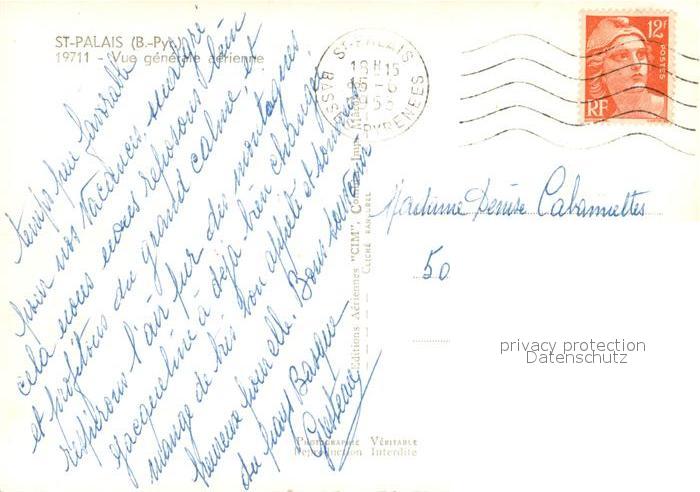 ST-PALAIS (B.-Pyr.)
19711 - Vue générale aérienne
temps peu favorable
pour nos vacances, malgré
cela nous nous reposons bien
et profitons du grand calme, et
respirons l'air pur des montagnes
Jacqueline a déjà bien changé
mange de très bon appétit et
heureuse nouvelle. Bons souvenirs
du pays Basque
Editions Aériennes "CIM", Combier Imp. Macon
CLICHÉ RANCUREL
PHOTOGRAPHIE VÉRITABLE
Reproduction Interdite
ST-PALAIS
18H15
BASSES PYRENEES
12F
POSTES
RF
Madame Denise Cabannettes
50
privacy protection
Datenschutz